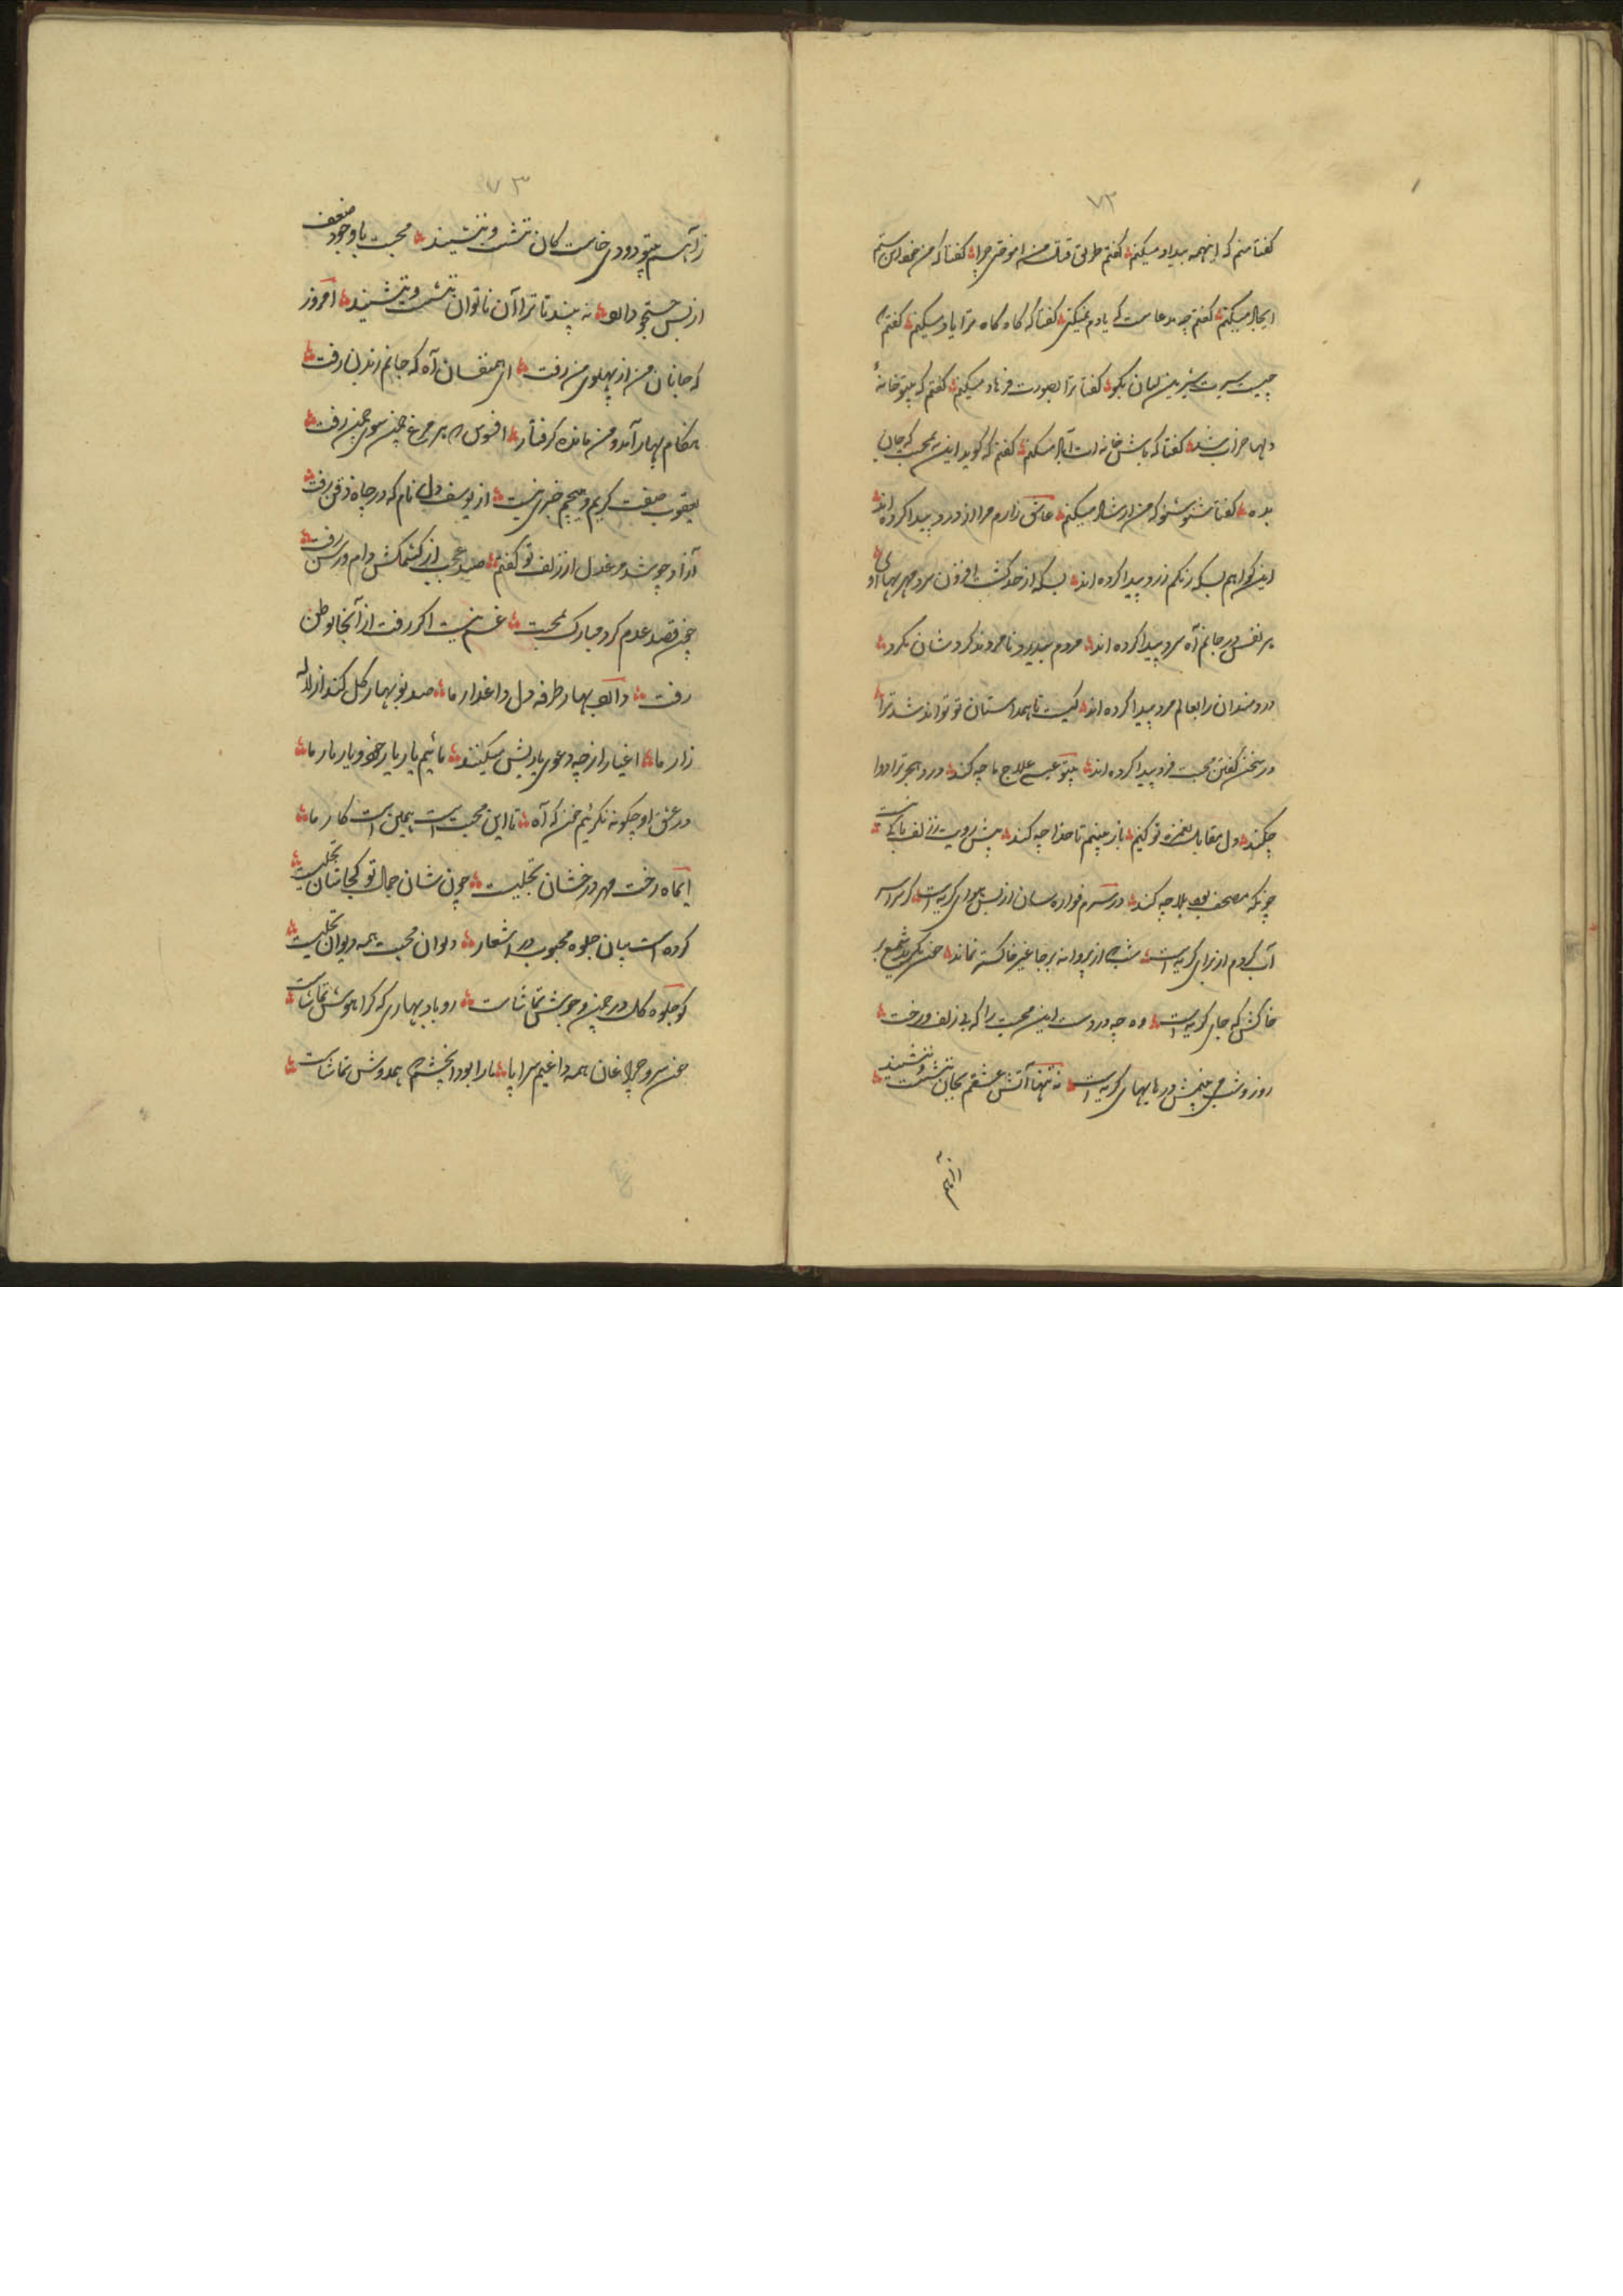 ۷۲
کفتا منم که اینهمه بیداد میکنم کفتم طریق قتل من اموختی چرا کفتا که من بخود این ستم
ایجاد میکنم کفتم چه مدعاست که یادم نمیکنی کفتا که گاه گاه ترا یاد میکنم کفتم
چیست سیرت شیرین لبان بکو کفتا ترا بصورت فرهاد میکنم کفتم که بیتو خانهٔ
دلها خراب شد کفتا که باش خانه ات آباد میکنم کفتم که کوید اینکه محبت که جان
بده کفتا شنو شنو که من ارشاد میکنم عاشق زارم مرا از درد پیدا کرده اند
اینکواهم بسکه رنکم زرد پیدا کرده اند بسکه از حد کشت افزون سرد مهریهای او
هر نفس در جانم آه سرد پیدا کرده اند مردم بیدرد نامردند کردشان نکرد
دردمندان را بعالم مرد پیدا کرده اند کیست تا همداستان تو تواند شد ترا
در سخن کفتن محبت فرد پیدا کرده اند بیتو عیسی علاج ما چه کند درد هجر ترا دوا
چکند دل مقابل بغمزه تو کنیم باز بینیم تا خدا چه کند پیش رویت ز زلف باکی نیست
چونکه مصحف بود بلا چه کند در سرم فواره سان از بس هوای کریه است
آب کردم از برای کریه است شب که از پروانه بر جا غیر خاکستر نماند شمع بر
خاکش که جای کریه است وه چه دردست این محبت را که بی زلف و رخت
روز و شب می بینمش در هایهای کریه است نه تنها آتش عشقم بجان ننشست و ننشیند
ز آهم
۷۳
ز آهم بیتو دودی خاست کان ننشست و ننشیند محبت با وجود ضعف
از بس جستجو دارد نه پیند تا ترا آن ناتوان ننشست و ننشیند امروز
که جانان من از پهلوی من رفت ای همنفسان آه که جانم ز بدن رفت
هنکام بهار آمد و من مانده کرفتار افسوس که هر مرغ چمن سوی چمن رفت
یعقوب صفت کریم و هیچم خبری نیست از یوسف دل نام که در چاه ذقن رفت
آزاد چو شد مرغ دل از زلف تو کفتم صید عجب از کشمکش دام و رسن رفت
چون قصد عدم کرد مبارک بمحبت غم نیست اکر رفت از آنجا بوطن
رفت دارد بهار طرفه دل داغدار ما صد نوبهار کل کند از لاله
زار ما اغیار از چه دعوی یاریش میکنند مائیم یار یار خود و یار یار ما
در عشق او چکونه نکرئیم خون که آه تا این محبت است همین است کار ما
ایماه رخت مهر درخشان تجلیست چون شان جمال تو کجا شان تجلیست
کرده است بیان جلوه محبوب در اشعار دیوان محبت همه دیوان تجلیست
کو جلوه کل در چمن و جوش تماشاست رو باد بهاری که کرا هوش تماشاست
چون سرو چراغان همه داغیم سراپا ما را بود این چشم همدوش تماشاست